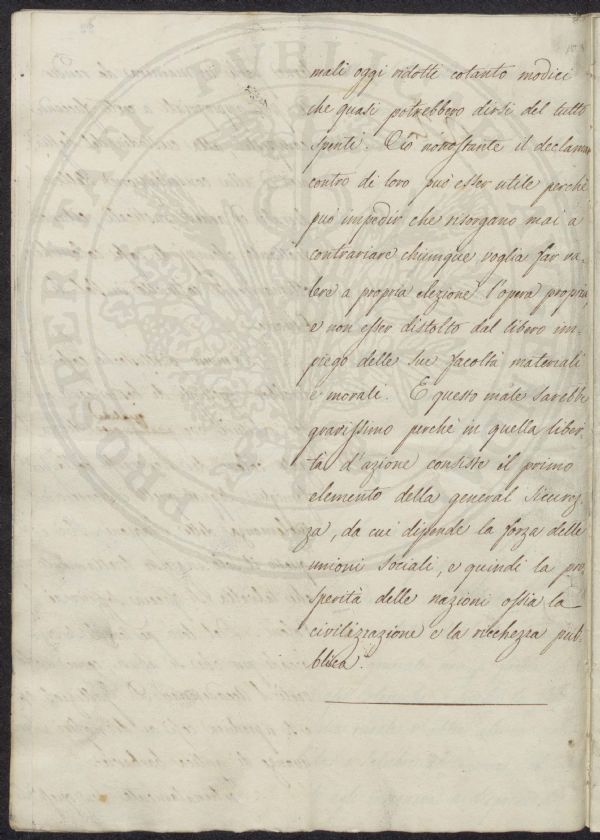 mali oggi ridotti cotanto modici
che quasi potrebbero dirsi del tutto
spenti. Ciò nonostante il declamar
contro di loro può esser utile perchè
può impedir che risorgano mai a
contrariare chiunque voglia far va-
lere a propria elezione l'opera propria,
e non esser distolto dal libero im-
piego delle sue facoltà materiali
e morali. E questo male sarebbe
gravissimo perchè in quella liber-
tà d'azione consiste il primo
elemento della general sicurez-
za, da cui dipende la forza delle
unioni sociali, e quindi la pro-
sperità delle nazioni ossia la
civilizzazione e la ricchezza pub-
blica.
PROSPERITATI PUBLICAE